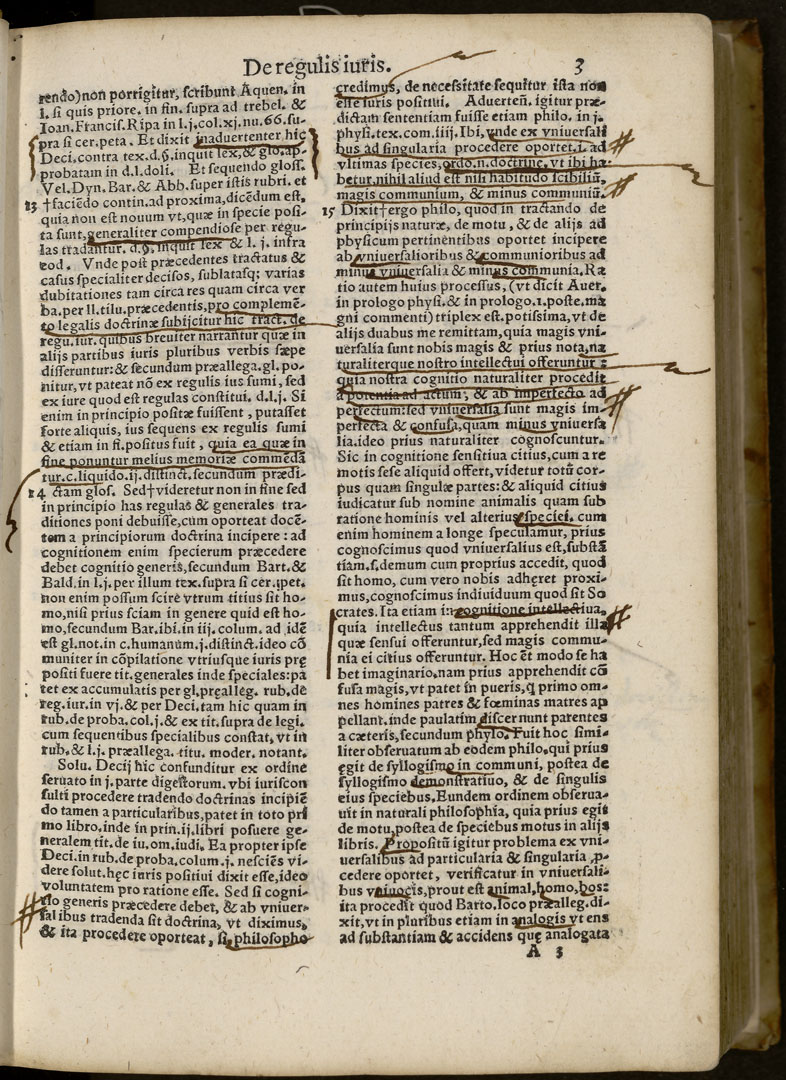 De regulis iuris. 3
rendo) non porrigitur, scribunt Aquen. in
l. si quis priore. in fin. supra ad trebel. &
Ioan. Francis. Ripa in l. j. col. xj. nu. 66. su-
pra si cer. peta. Et dixit inaduertenter hic
Deci. contra tex. d. §. inquit lex, & glo. ap-
probatam in d. l. doli. Et sequendo gloss.
Vel. Dyn. Bar. & Abb. super istis rubri. et
13 †faciẽdo contin. ad proxima, dicẽdum est,
quia non est nouum vt, quæ in specie posi-
ta sunt, generaliter compendiose per regu-
las tradantur. d. §. inquit lex & l. j. infra
eod. Vnde post præcedentes tractatus &
casus specialiter decisos, sublatasq; varias
dubitationes tam circa res quam circa ver
ba. per ll. tilu. præcedentis, pro complemẽ-
to legalis doctrinæ subijcitur hic tract. de
regu. iur. quibus breuiter narrantur quæ in
alijs partibus iuris pluribus verbis sæpe
disseruntur: & secundum præallega. gl. po-
nitur, vt pateat nõ ex regulis ius sumi, sed
ex iure quod est regulas constitui. d. l. j. Si
enim in principio positæ fuissent, putasset
forte aliquis, ius sequens ex regulis sumi
& etiam in fi. positus fuit, quia ea quæ in
fine ponuntur melius memoriæ commẽdã
tur. c. liquido. ij. distinct. secundum prædi-
14 ctam glos. Sed†videretur non in fine sed
in principio has regulas & generales tra-
ditiones poni debuisse, cum oporteat docẽ-
tem a principiorum doctrina incipere: ad
cognitionem enim specierum præcedere
debet cognitio generis, secundum Bart. &
Bald. in l. j. per illum tex. supra si cer. pet.
non enim possum scire vtrum titius sit ho-
mo, nisi prius sciam in genere quid est ho-
mo, secundum Bar. ibi. in iij. colum. ad idẽ
est gl. not. in c. humanum. j. distinct. ideo cõ
muniter in cõpilatione vtriusque iuris prę
positi fuere tit. generales inde speciales: pa
tet ex accumulatis per gl. pręalleg. rub. de
reg. iur. in vj. & per Deci. tam hic quam in
rub. de proba. col. j. & ex tit. supra de legi.
cum sequentibus specialibus constat, vt in
rub. & l. j. præallega. titu. moder. notant.
Solu. Decij hic confunditur ex ordine
seruato in j. parte digestorum. vbi iuriscon
sulti procedere tradendo doctrinas incipiẽ
do tamen a particularibus, patet in toto pri
mo libro, inde in prin. ij. libri posuere ge-
neralem tit. de iu. om. iudi. Ea propter ipse
Deci. in rub. de proba. colum. j. nesciẽs vi-
dere solut. hęc iuris positiui dixit esse, ideo
voluntatem pro ratione esse. Sed si cogni-
tio generis præcedere debet, & ab vniuer-
salibus tradenda sit doctrina, vt diximus,
& ita procedere oporteat, si philosopho
credimus, de necessitate sequitur ista non
esse iuris positiui. Aduerten. igitur præ-
dictam sententiam fuisse etiam philo. in j.
physi. tex. com. iiij. Ibi, vnde ex vniuersali
bus ad singularia procedere oportet. i. ad
vltimas species, ordo. n. doctrine, vt ibi ha-
betur, nihil aliud est nisi habitudo scibiliũ,
magis communium, & minus communiũ.
15 Dixit†ergo philo, quod in tractando de
principijs naturæ, de motu, & de alijs ad
physicum pertinentibus oportet incipere
ab vniuersalioribus & communioribus ad
minus vniuersalia & minus communia. Ra
tio autem huius processus, (vt dicit Auer.
in prologo physi. & in prologo. 1. poste. ma
gni commenti) triplex est. potissima, vt de
alijs duabus me remittam, quia magis vni-
uersalia sunt nobis magis & prius nota, na
turaliterque nostro intellectui offeruntur:
quia nostra cognitio naturaliter procedit
a potentia ad actum, & ab imperfecto ad
perfectum: sed vniuersalia sunt magis im-
perfecta & confusa, quam minus vniuersa
lia. ideo prius naturaliter cognoscuntur.
Sic in cognitione sensitiua citius, cum a re
motis sese aliquid offert, videtur totũ cor-
pus quam singulæ partes: & aliquid citius
iudicatur sub nomine animalis quam sub
ratione hominis vel alterius speciei. cum
enim hominem a longe speculamur, prius
cognoscimus quod vniuersalius est, substã
tiam. s. demum cum proprius accedit, quod
sit homo, cum vero nobis adhęret proxi-
mus, cognoscimus indiuiduum quod sit So
crates. Ita etiam in cognitione intellectiua,
quia intellectus tantum apprehendit illa
quæ sensui offeruntur, sed magis commu-
nia ei citius offeruntur. Hoc ẽt modo se ha
bet imaginatio, nam prius apprehendit cõ
fusa magis, vt patet in pueris, q̃ primo om-
nes homines patres & fœminas matres ap
pellant. inde paulatim discernunt parentes
a cæteris, secundum phylo. Fuit hoc simi-
liter obseruatum ab eodem philo. qui prius
egit de syllogismo in communi, postea de
syllogismo demonstratiuo, & de singulis
eius speciebus. Eundem ordinem obserua-
uit in naturali philosophia, quia prius egit
de motu, postea de speciebus motus in alijs
libris. Propositũ igitur problema ex vni-
uersalibus ad particularia & singularia p-
cedere oportet, verificatur in vniuersali-
bus vniuocis, prout est animal, homo, bos:
ita procedit quod Barto. loco præalleg. di-
xit, vt in pluribus etiam in analogis vt ens
ad substantiam & accidens quę analogata
A 3